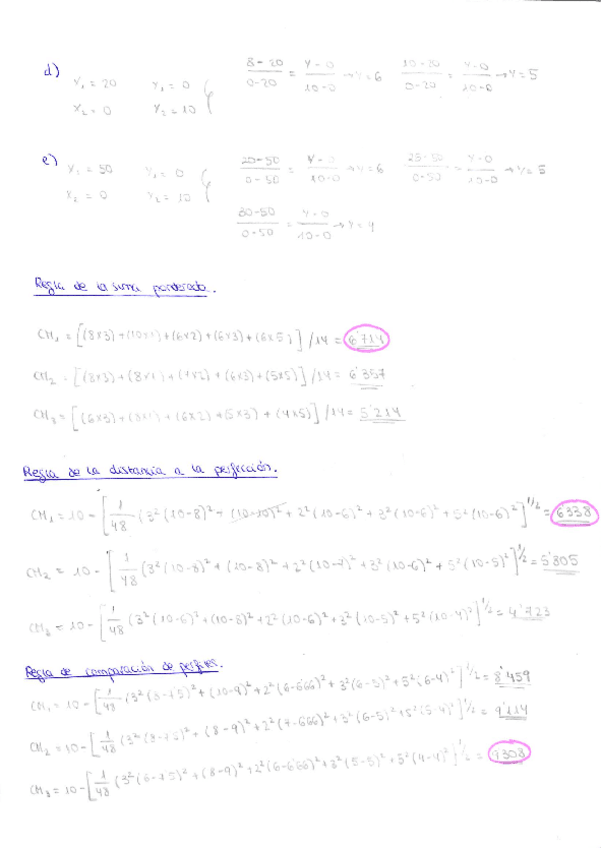 d) Y₁ = 20 Y₁ = 0 8-20/0-20 = Y-0/10-0 → Y = 6 10-20/0-20 = Y-0/10-0 → Y = 5
X₂ = 0 Y₂ = 10
e) Y₁ = 50 Y₁ = 0 20-50/0-50 = Y-0/10-0 → Y = 6 25-50/0-50 = Y-0/10-0 → Y = 5
X₂ = 0 Y₂ = 10
30-50/0-50 = Y-0/10-0 → Y = 4
Regla de la suma ponderada.
CM₁ = [(8x3)+(10x1)+(6x2)+(6x3)+(6x5)]/14 = 6'714
CM₂ = [(8x3)+(8x1)+(7x2)+(6x3)+(5x5)]/14 = 6'357
CM₃ = [(6x3)+(8x1)+(6x2)+(5x3)+(4x5)]/14 = 5'214
Regla de la distancia a la perfección.
CM₁ = 10 - [1/48 (3²(10-8)² + (10-10)² + 2²(10-6)² + 3²(10-6)² + 5²(10-6)²]^1/2 = 6338
CM₂ = 10 - [1/48 (3²(10-8)² + (10-8)² + 2²(10-7)² + 3²(10-6)² + 5²(10-5)²]^1/2 = 5'805
CM₃ = 10 - [1/48 (3²(10-6)² + (10-8)² + 2²(10-6)² + 3²(10-5)² + 5²(10-4)²]^1/2 = 4'723
Regla de comparación de perfiles.
CM₁ = 10 - [1/48 (3²(8-7'5)² + (10-9)² + 2²(6-6'666)² + 3²(6-5)² + 5²(6-4)²]^1/2 = 8'459
CM₂ = 10 - [1/48 (3²(8-7'5)² + (8-9)² + 2²(7-666)² + 3²(6-5)² + 5²(5-4)²]^1/2 = 9'114
CM₃ = 10 - [1/48 (3²(6-7'5)² + (8-9)² + 2²(6-6'666)² + 3²(5-5)² + 5²(4-4)²]^1/2 = 9308